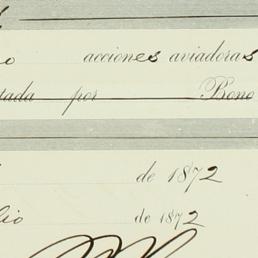 acciones aviadoras
por Bono
de 1872
de 1872